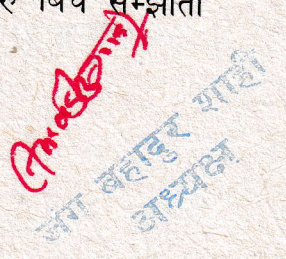 बिच सम्झौता
जंग बहादुर शाही
अध्यक्ष